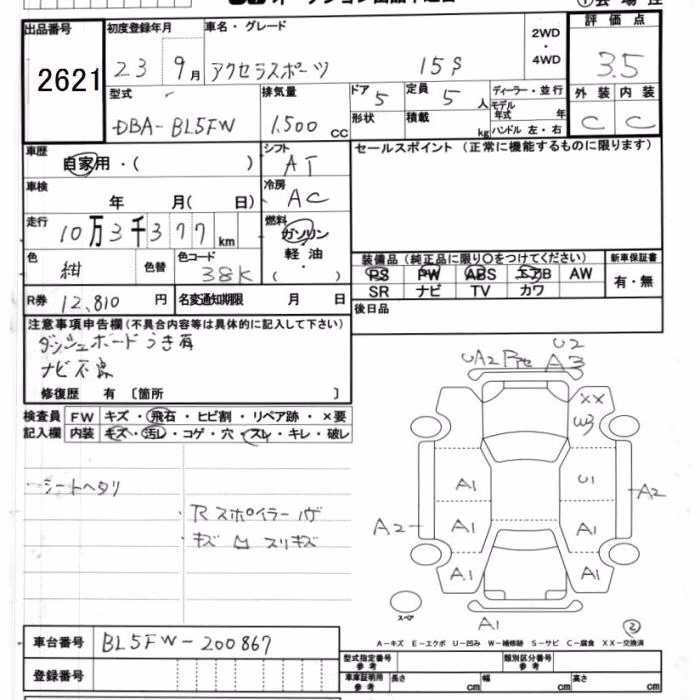 出品番号 初度登録年月 車名・グレード 2WD・4WD 評価点
2621 23 9月 アクセラスポーツ 15S 3.5
型式 排気量 ドア 5 定員 5人 ディーラー・並行 外装 内装
DBA-BL5FW 1,500cc 形状 積載 kg モデル年式 年 ハンドル 左・右 C C
車歴 自家用・( ) シフト AT セールスポイント (正常に機能するものに限ります)
車検 年 月( 日) 冷房 AC
走行 10万3千377km 燃料 ガソリン・軽油・( )
色 紺 色替 色コード 38K 装備品 (純正品に限り〇をつけてください) 新車保証書
PS PW ABS エアB AW 有・無
SR ナビ TV カワ
R券 12,810円 名変通知期限 月 日 後日品
注意事項申告欄 (不具合内容等は具体的に記入して下さい)
ダッシュボードうき有
ナビ不良
修復歴 有 〔箇所 〕
検査員 FW キズ・飛石・ヒビ割・リペア跡・×要
記入欄 内装 キズ・汚レ・コゲ・穴・スレ・キレ・破レ
シートヘタリ
Rスポイラー
キズ スリキズ
U2
UA2 A3
XX
W3
A1 U1
A2 A2
A1 A1
A1 A1
スペア
A1
2
A-キズ E-エクボ U-凹み W-補修跡 S-サビ C-腐食 XX-交換済
車台番号 BL5FW-200867
登録番号
型式指定番号 参考 類別区分番号 参考
車庫証明用 参考 長さ cm 幅 cm 高さ cm